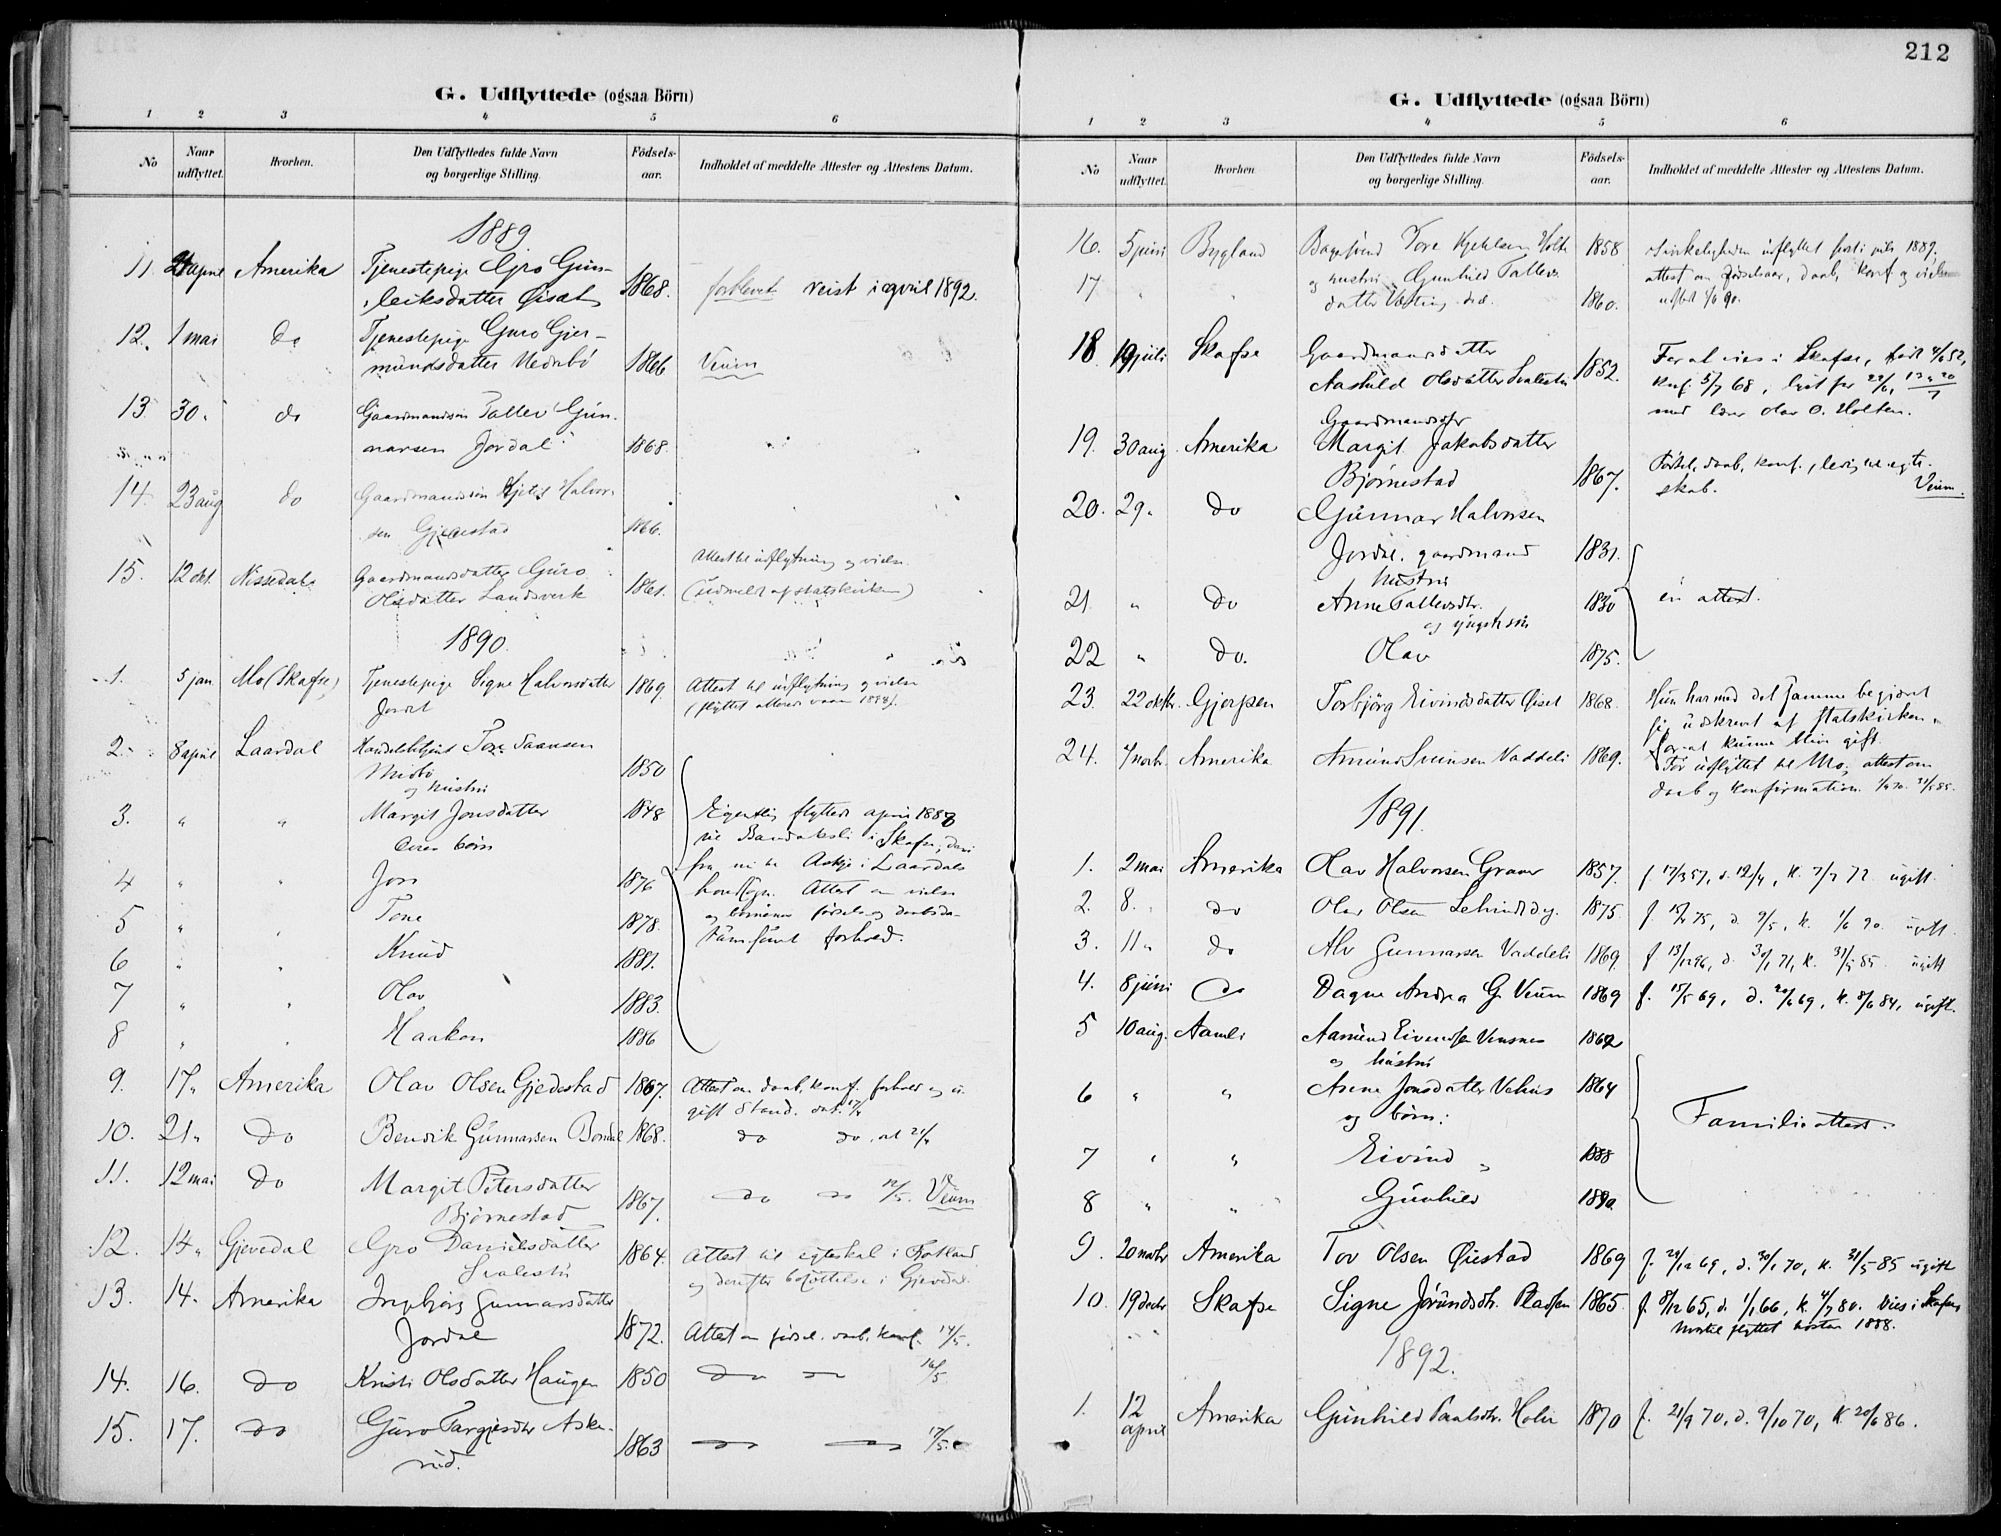 212
G. Udflyttede (ogsaa Börn)
1 2 3 4 5 6
No Naar udflyttet. Hvorhen. Den Udflyttedes fulde Navn og borgerlige Stilling. Födselsaar. Indholdet af meddelte Attester og Attestens Datum.
1889.
11. 21 april Amerika Tjenestepige Gro Gun-
leiksdatter Øisæt 1868. forblevet reist i april 1892.
12. 1 mai do Tjenestepige Guro Gjer-
mundsdatter Nedrebö 1866 Veum
13 30. do Gaardmandssön Tallev Gun-
narsen Jordal 1868.
14. 23 aug do Gaardmandssön Kjetil Halvor-
sen Gjedestad 1866.
15. 12 okt. Nissedal Gaardmandsdatter Guro
Olsdatter Landsverk 1861. Attest til udflytning og vielse
(udmeldt af statskirken)
1890.
1. 5 jan Mo (Skafse) Tjenestepige Signe Halvorsdatter
Jordal 1869. Attest til udflytning og vielse
2. 8 april Laardal Tore Saansen
Midbö 1850
og hustru
3. " " Margit Jonsdatter 1848 Egentlig flyttede april 1888
Deres börn til Bandaksli i Skafse, derf
4 " " Jon 1876 fra nu til Askje i Laardals
hovedsogn. Attest om vielse
5 " " Tone 1878.
samt forhold.
6 " " Knud 1881.
7 " " Olav 1883.
8 " " Haakon 1886
9. 17. Amerika Olav Olsen Gjedestad 1867. Attest om daab, konf. forhold og u-
gift Stand. dat. 17/4
10. 21. do Bendik Gunnarsen Bondal 1868. do do, at 21/4
11. 12 mai do Margit Petersdatter
Bjørnestad 1867. do do 12/5. Veum
12. 14. Gjevedal Gro Danielsdatter
Svalestu 1864. Attest til egteskab i Fotland
og derefter bosættelse i Gjevedal
13. 14. Amerika Ingebjørg Gunnarsdatter
Jordal 1872. Attest om födsel, daab, konf. 14/5.
14. 16. do Kristi Olsdatter Haugen 1850 do do 16/5.
15. 17. do Guro Targjesdtr Aske-
rud. 1863 do do 17/5.
G. Udflyttede (ogsaa Börn)
1 2 3 4 5 6
No Naar udflyttet. Hvorhen Den Udflyttedes fulde Navn og borgerlige Stilling. Födselsaar. Indholdet af meddelte Attester og Attestens Datum.
16. 5 juni Bygland Tore Kjetilsen Holte 1858 I virkeligheden udflyttet hosti juli 1889.
17 " " og hustru Gunhild Tallevs-
datter 1860. attest om födselsaar, daab, konf. og vielse
18 19 juli Skafse Gaardmandsdatter
Aashild Olsdatter Svalestu 1852. For at vies i Skafse, född 4/6 52,
konf. 5/7 68, lyst for 22/6, 13 og 20/7
med Olav O. Holten.
Gaardmandsdtr
19. 30 aug. Amerika Margit Jakobsdatter
Bjørnestad 1867. Födsel, daab, konf., ledig til egte-
skab. Veum.
20. 29. do Gunnar Halvorsen
Jordal. gaardmand 1831.
hustru
21. " do Anne Tallevsdtr. 1830 én attest.
og yngste sön
22 " do. Olav 1875.
23. 22 oktbr. Gjerpen Torbjörg Eivindsdatter Øiset 1868. Hun har med det samme begjæret
sig udskrevet af statskirken
for at kunne blive gift
24. 4 novb. Amerika Amund Svensen Vaddeli 1869. Før udflyttet til Mo, attest om
daab og konfirmation.
1891.
1. 2 mai Amerika Olav Halvorsen Graver 1857. f 17/3 57, d. 12/4, k. 7/7 72 ugift.
2. 8. do Olav Olsen 1875. f. 15/4 75, d. 9/5, k. 1/6 90. ugift.
3. 11. do Alv Gunnarsen Vaddeli 1869. d. 30/1 71, k. 31/5 85. ugift
4. 8 juni do Dagne Andrea G. Veum 1869 f. 15/5 69, d. 20/6 69, k. 8/6 84, ugift.
5 10 aug. Aamli Aamund Eivindsen Vensnes 1862
og hustru
6 " " Anne Jonsdatter 1864
og börn: Familieattest.
7 " " Eivind " 1888
8 " " Gunhild 1890.
9. 20 novbr Amerika Tov Olsen Øiestad 1869 f. 29/12 69, d. 30/1 70, k. 31/5 85 ugift
10. 19 decbr Skafse Signe Jørundsdtr. Pladsen 1865. f. 8/12 65, d. 1/1 66, k. 4/7 80. Vies i Skafse
flyttet høsten 1888.
1892.
1. 12 april Amerika Gunhild Paalsdtr. Holir 1870 f. 21/9 70, d. 9/10 70, k 20/6 86.